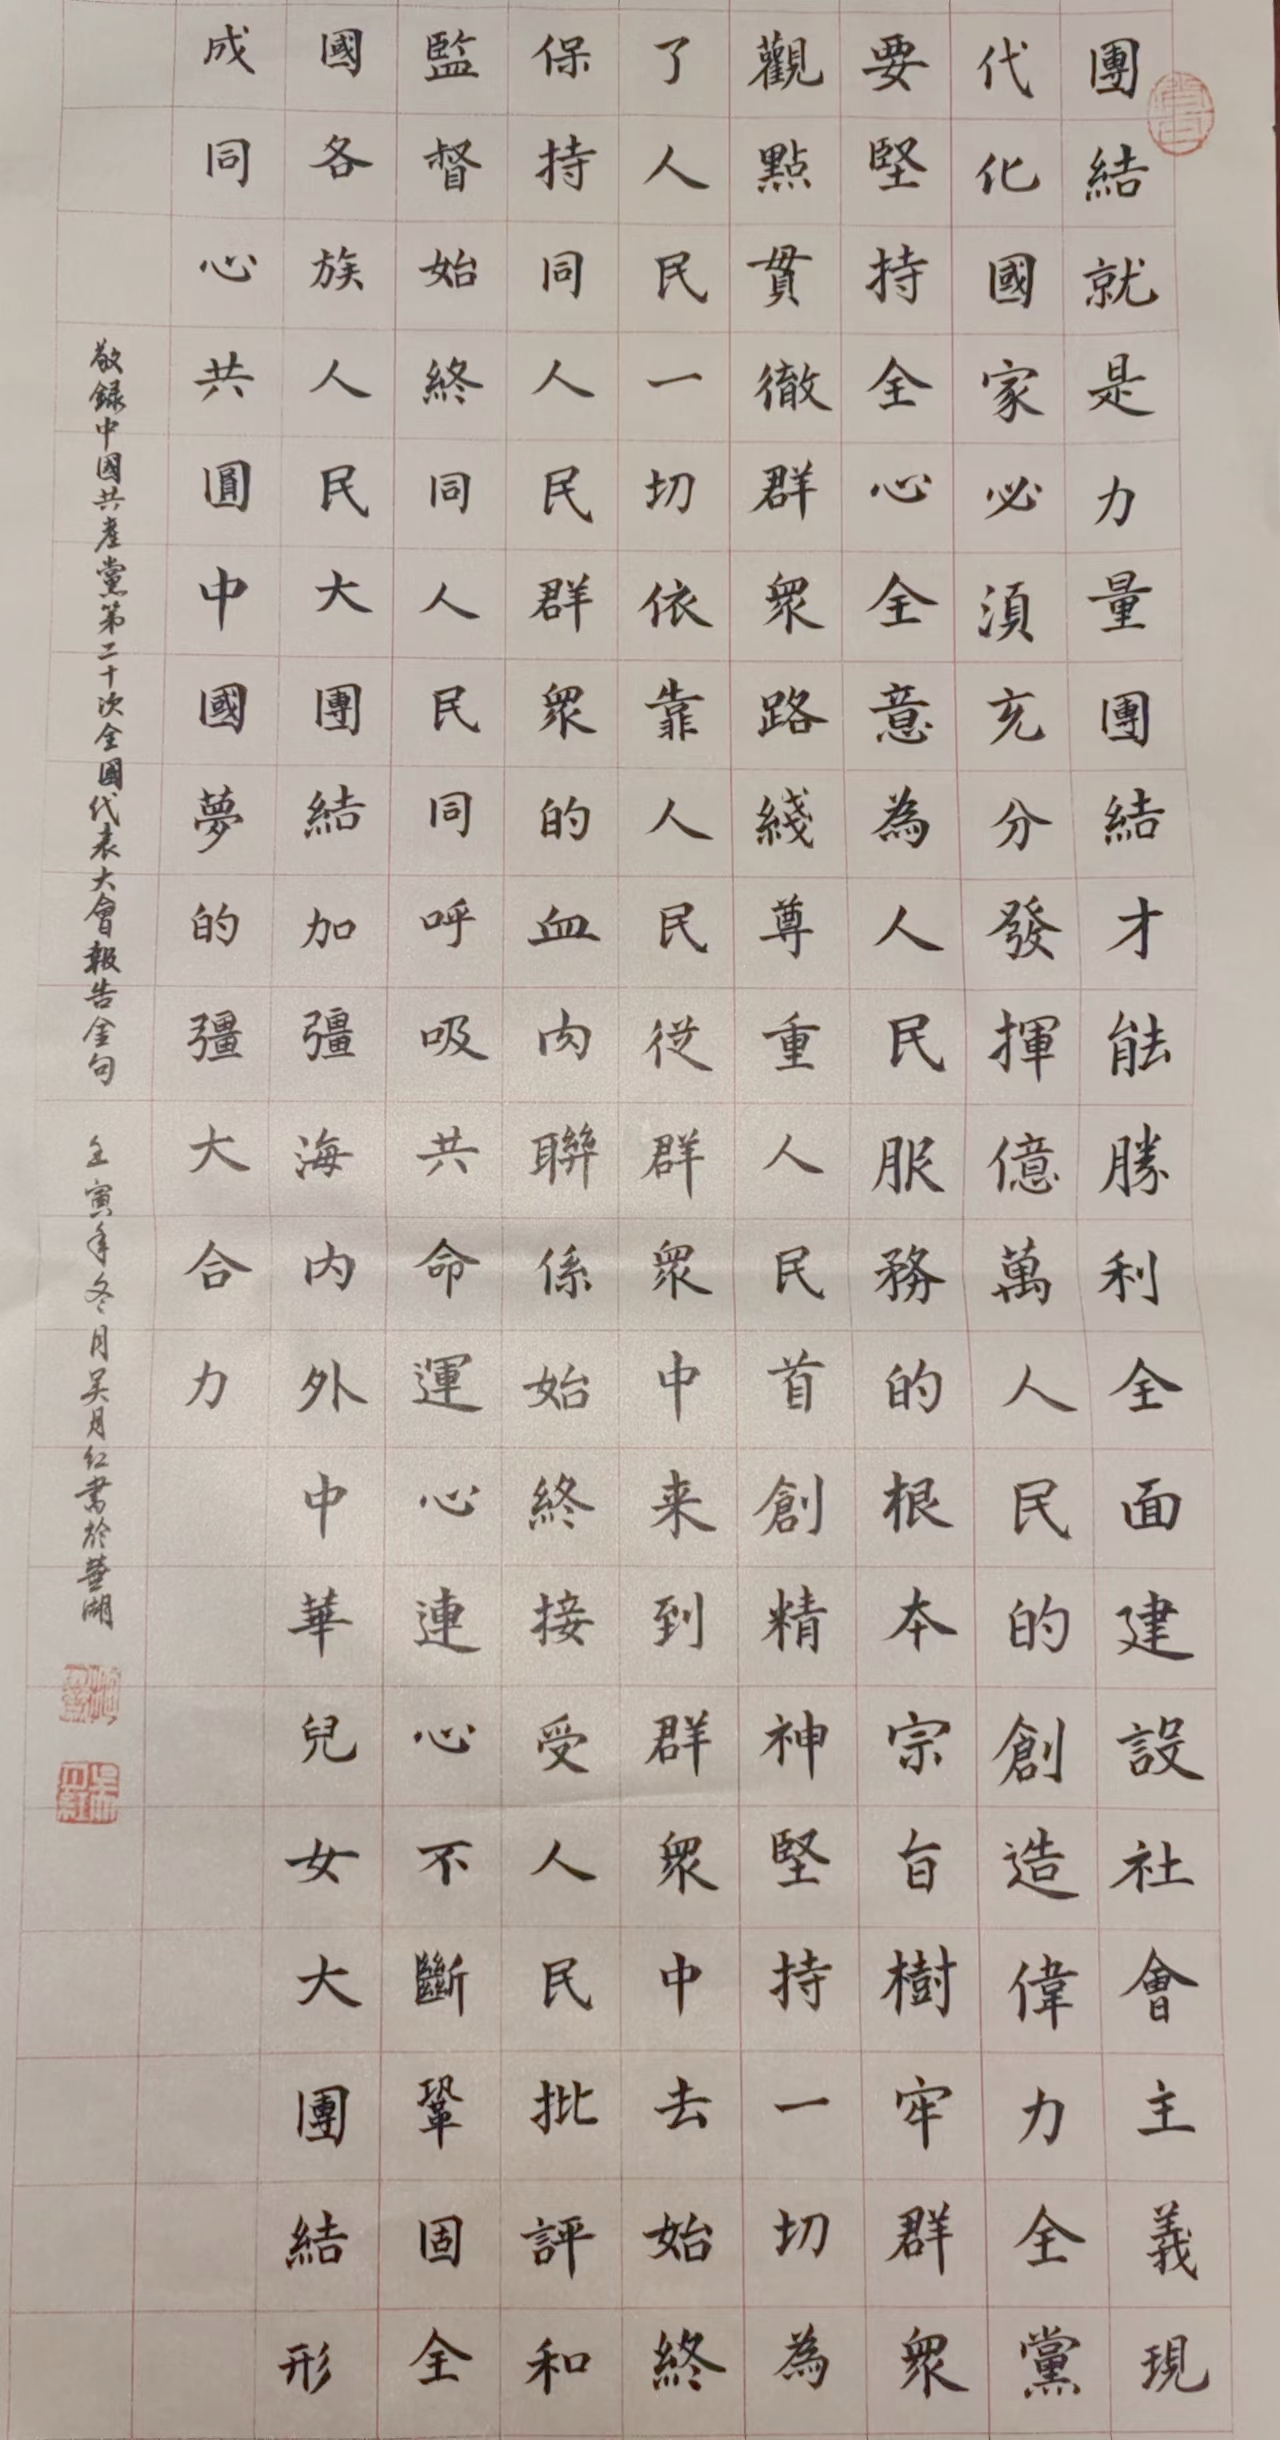 團結就是力量團結才能勝利全面建設社會主義現
代化國家必須充分發揮億萬人民的創造偉力全黨
要堅持全心全意為人民服務的根本宗旨樹牢群眾
觀點貫徹群眾路綫尊重人民首創精神堅持一切為
了人民一切依靠人民從群眾中来到群眾中去始終
保持同人民群眾的血肉聯係始終接受人民批評和
監督始終同人民同呼吸共命運心連心不斷鞏固全
國各族人民大團結加彊海内外中華兒女大團結形
成同心共圓中國夢的彊大合力
敬録中國共產黨第二十次全國代表大會報告金句 壬寅年冬月吴月紅書於萱湖